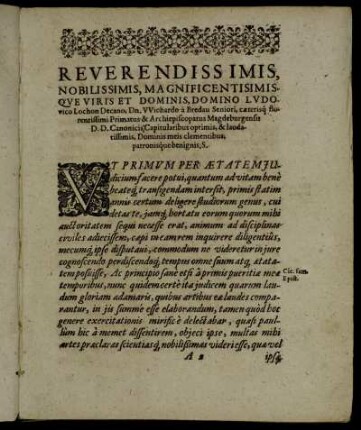 REVERENDISSIMIS,
NOBILISSIMIS, MAGNIFICENTISIMIS-
QVE VIRIS ET DOMINIS, DOMINO LVDO-
vico Lochon Decano, Dn. VVichardo à Bredau Seniori, cæterisq; flo-
rentissimi Primatus & Archiepiscopatus Magdeburgensis
D.D. Canonicis Capitularibus optimis, & lauda-
tissimis, Dominis meis clementibus,
patronisque benignis, S.
VT PRIMVM PER ÆTATEM JU-
dicium facere potui, quantum ad vitam benè
beateq; transigendam intersit, primis statim
annis certum deligere studiorum genus, cui
deditæ, jamq; hortatu eorum quorum mihi
auctoritatem sequi necesse erat, animum ad disciplinas
civiles adjecissem, cæpi tum rem inquirere diligentiùs,
mecumq; ipse disputavi, commodum ne videretur in jure
cognoscendo perdiscendoq; tempus omne summ atq; ætata-
tem posuisse. Ac principio sanè etsi à primis pueritiæ meæ
temporibus, nunc quidem certè ita judicem quarum lau-
dum gloriam adamaris, quibus artibus ea laudes compa-
rantur, in iis summè esse elaborandum, tamen quod hoc
genere exercitationis mirificè delectabar, quasi paul-
lùm hic à memet dissentirem, objeci ipse, multas mihi
artes præclaras scientiasq; nobilissimas videri esse, quæ vel
Cic. fam.
Epist.
A 2
ipsq;